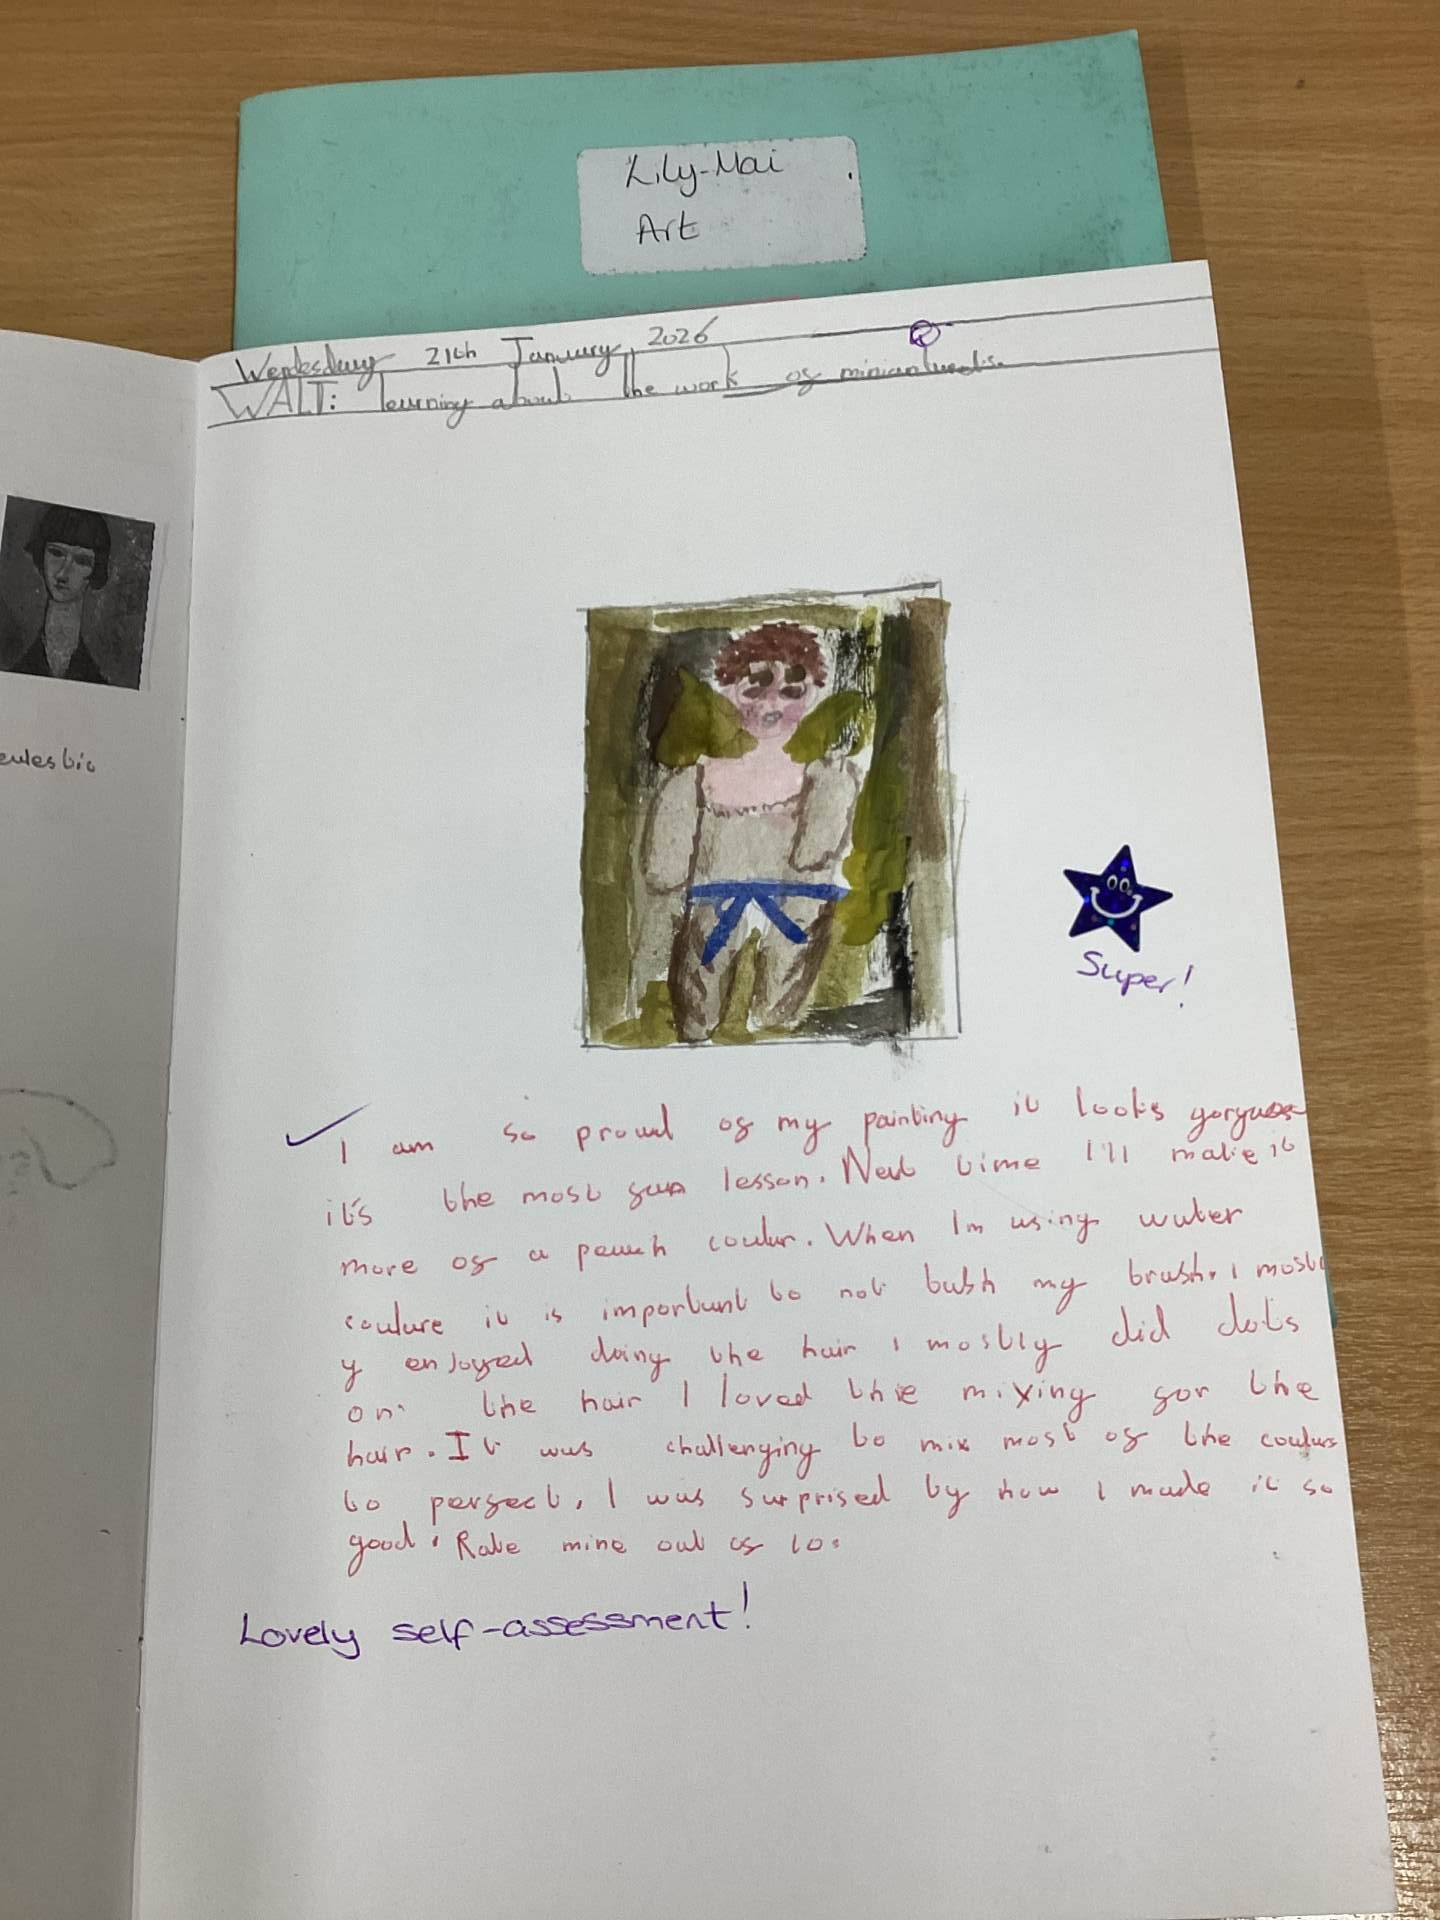 Lily-Mai
Art
Wendesday 21th January, 2026
WALT: learning about the work of
eulesbic
Super!
I am so proud of my painting it looks
it's the most fun lesson. Next time I'll make it
more of a peach coulur. When Im using water
coulure it is important to not bash my brush. I mostl
y enjoyed doing the hair I mostly did dots
on the hair I loved the mixing for the
hair. It was challenging to mix most of the coulurs
to perfect. I was surprised by how I made it so
good. Rate mine out of 10.
Lovely self-assessment!